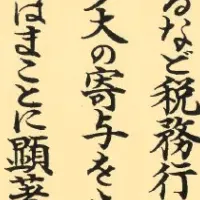 るなど税務行
大の寄与をさ
はまことに顕著